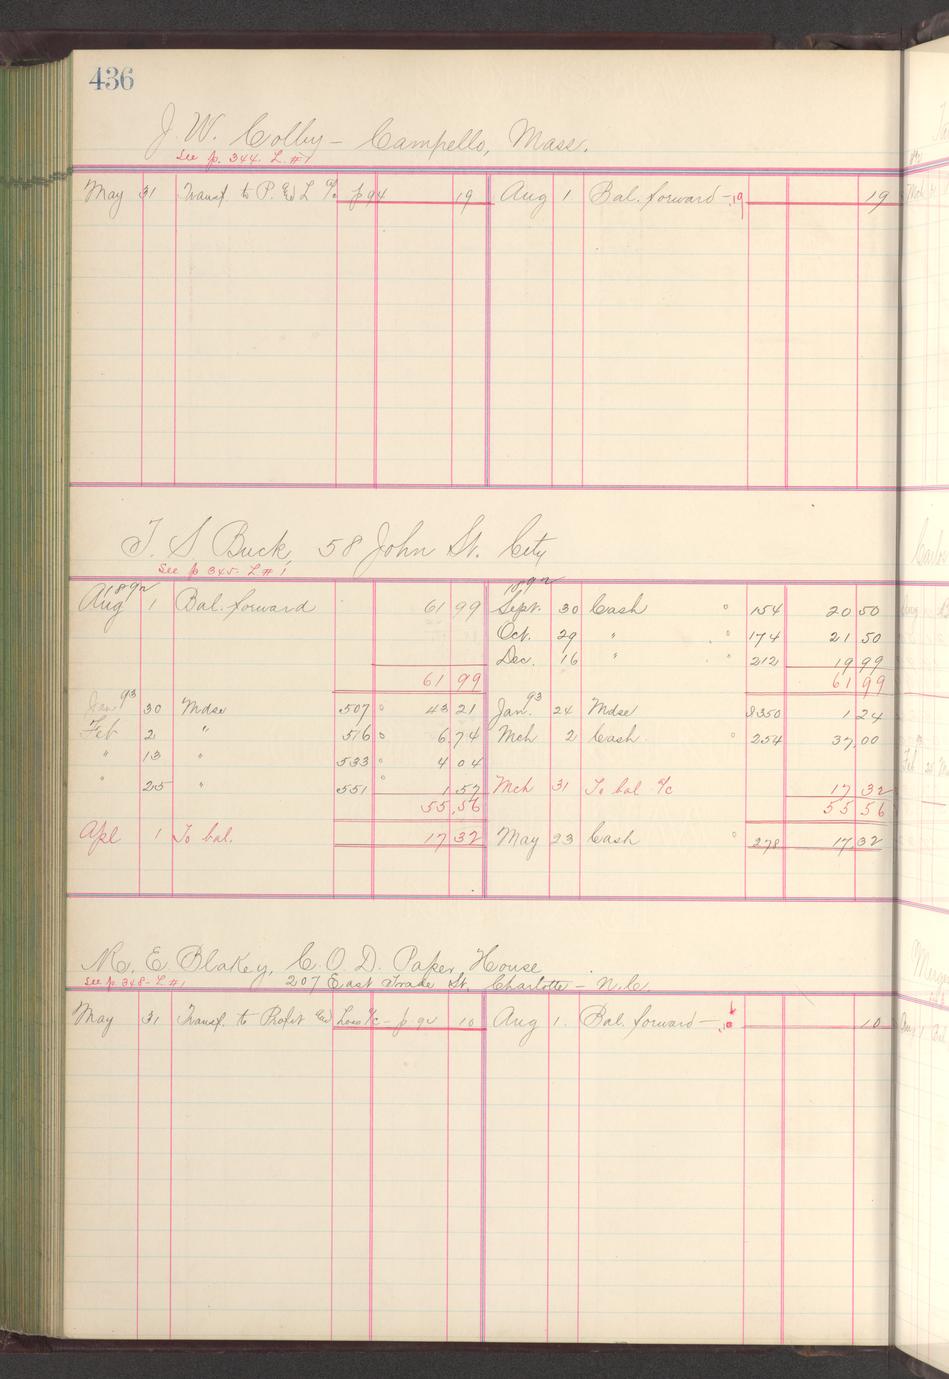 436
J. W. Colby – Campello, Mass.
See p. 344. L. #1
May 31 Transf. to P. & L a/c p 94 19 Aug 1 Bal. forward – .19 19
T. S. Buck, 58 John St. City
See p 345 - L #1
1892 1892
Aug 1 Bal. forward 61 99 Sept. 30 Cash 154 20 50
Oct. 29 " 174 21 50
Dec. 16 " 212 19 99
61 99 61 99
Jan 93 30 Mdse 507 43 21 Jan. 93 24 Mdse 350 1 24
Feb 2 " 516 6 74 Mch 2 Cash 254 37,00
" 13 " 533 4 04
" 25 " 551 1 57 Mch 31 To bal a/c 17 32
55,56 55 56
Apl 1 To bal. 17 32 May 23 Cash 278 17 32
M. E. Blakey, C. O. D. Paper House
See p 348 - L #1 207 East Trade St. Charlotte – N.C.
May 31 Transf. to Profit and Loss a/c – p 92 10 Aug 1. Bal. forward – .10 10